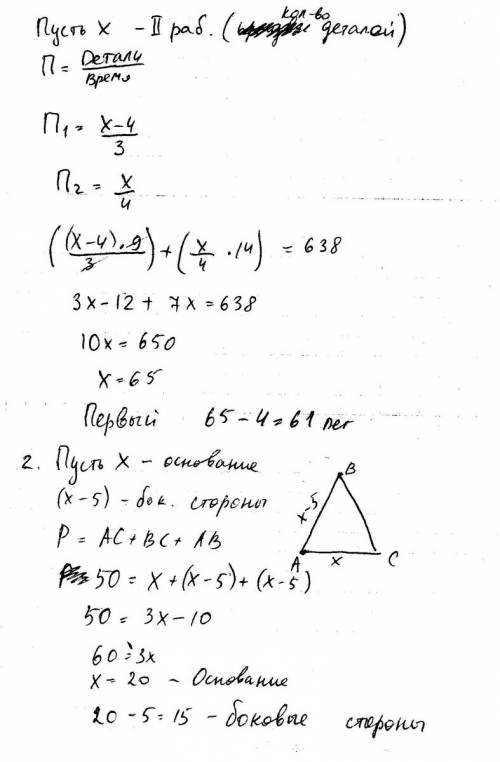 Пусть x - II раб. (кол-во деталей)
П = Детали/время
П₁ = (x-4)/3
П₂ = x/4
((x-4)·9/3) + (x/4 · 14) = 638
3x-12 + 7x = 638
10x = 650
x = 65
Первый 65-4=61
2. Пусть x - основание
(x-5) - бок. стороны
P = AC + BC + AB
50 = x + (x-5) + (x-5)
50 = 3x-10
60 = 3x
x = 20 - Основание
20-5=15 - боковые стороны
B
x-5
A x C